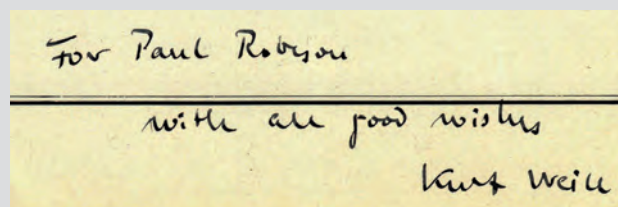 For Paul Robeson
with all good wishes
Kurt Weill